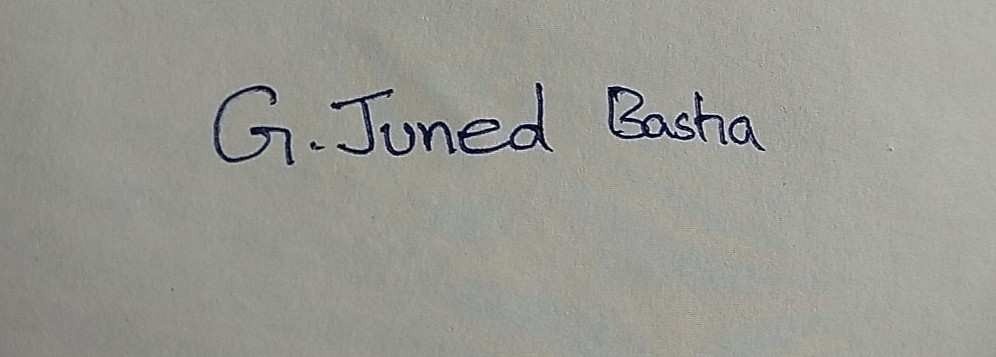 G. Juned Basha